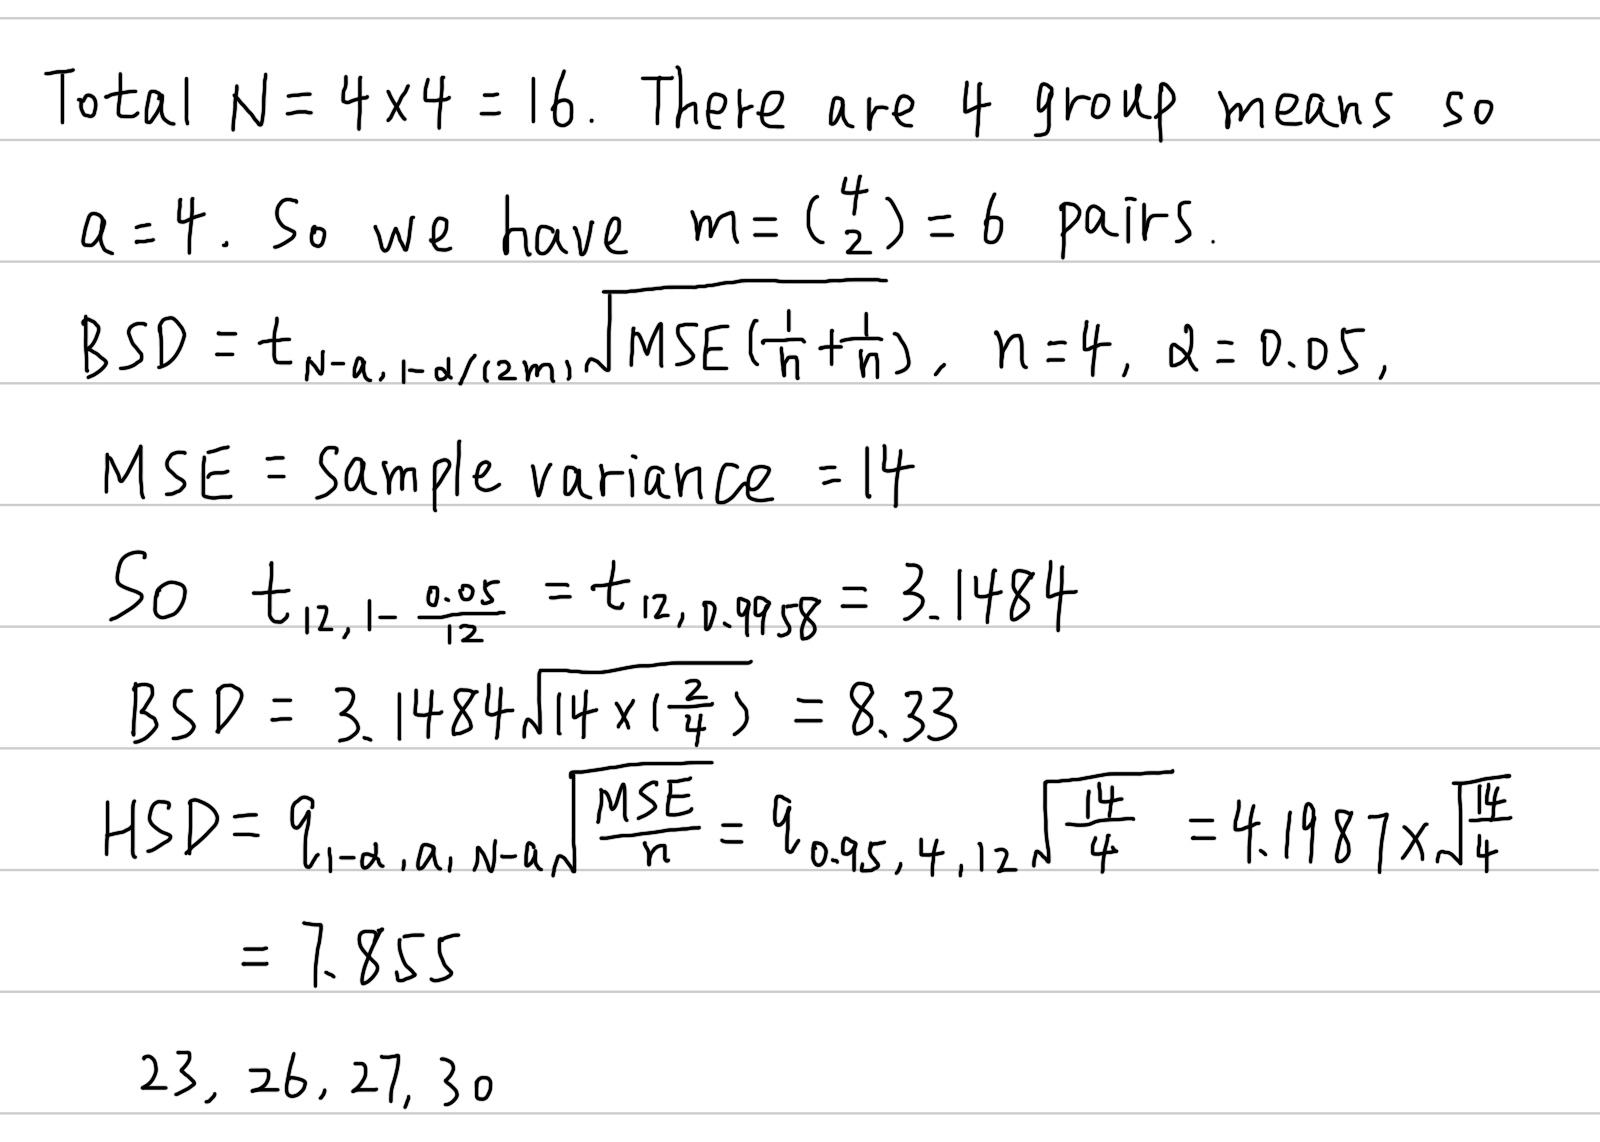 Total N = 4×4 = 16. There are 4 group means so
a = 4. So we have m = (4 2) = 6 pairs.
BSD = t_{N-a, 1-α/(2m)} √(MSE(1/n + 1/n)), n = 4, α = 0.05,
MSE = Sample variance = 14
So t_{12, 1- 0.05/12} = t_{12, 0.9958} = 3.1484
BSD = 3.1484 √(14 × (2/4)) = 8.33
HSD = q_{1-α, a, N-a} √(MSE/n) = q_{0.95, 4, 12} √(14/4) = 4.1987 × √(14/4)
= 7.855
23, 26, 27, 30